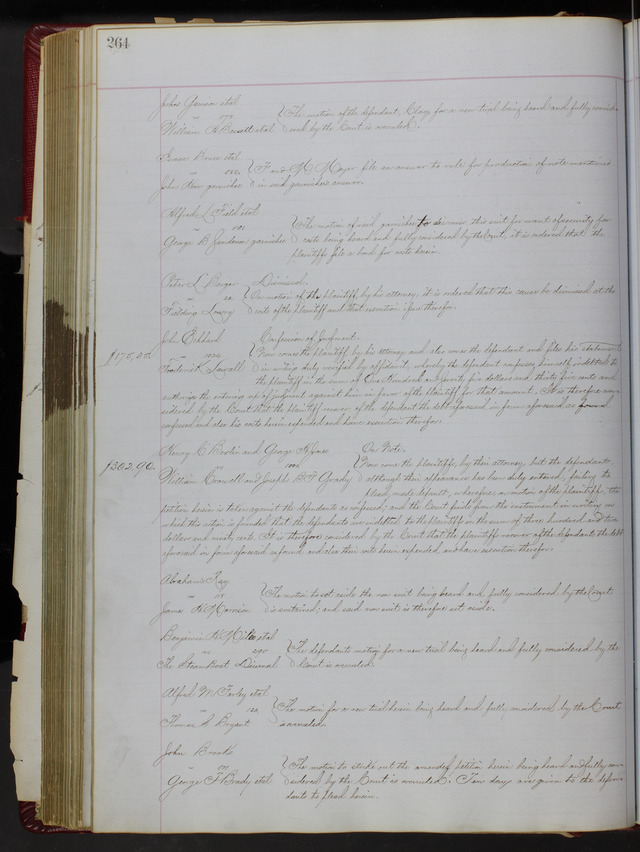 264
John
The motion of the defendant, Clay, for a new trial being heard and fully consid-
William H. Bassett et al ered by the Court is overruled.
Isaac et al
and M. Mayer file an answer to rule for production of note mentioned
John garnishee in said garnishees answer.
Alfred L. Field et al
The motion of said garnishee to dismiss this suit for want of security for
George B. garnishee costs being heard and fully considered by the Court, it is ordered that the
plaintiffs file a bond for costs herein.
Peter L. Barge Dismissed.
On motion of the plaintiff, by his attorney, it is ordered that this cause be dismissed at the
Fielding Lowry costs of the plaintiff and that execution issue therefor.
John Confession of Judgment.
$175,00 Now comes the plaintiff by his attorney and also comes the defendant and files his statement
Frederick in writing duly verified by affidavit, whereby the defendant confesses himself indebted to
the plaintiff in the sum of One hundred and seventy five dollars and cents and
authorizes the entering up of judgment against him in favor of the plaintiff for that amount. It is therefore con-
sidered by the Court that the plaintiff recover of the defendant the debt aforesaid in form aforesaid
confessed and also his costs herein expended and have execution therefor.
Henry C. and George On Note.
$302,90 Now come the plaintiffs, by their attorney, but the defendants,
William and Joseph B. Grady although their appearance has been duly entered, failing to
plead, made default, wherefore, on motion of the plaintiffs, the
petition herein is taken against the defendants as confessed; and the Court finds from the instrument in writing on
which the action is founded that the defendants are indebted to the plaintiffs in the sum of three hundred and two
dollars and ninety cents. It is therefore considered by the Court that the plaintiffs recover of the defendants the debt
aforesaid in form aforesaid and also their costs herein expended and have execution therefor.
Abraham Kay
The motion to set aside the non suit being heard and fully considered by the Court
James H. Morrison is sustained; and said non suit is therefore set aside.
Benjamin H. et al
The defendants motion for a new trial being heard and fully considered by the
The Steam Boat Court is overruled.
Alfred M. Farley et al
The motion for a new trial herein being heard and fully considered by the Court
Thomas A. Bryant is overruled.
John Brooks
The motion to strike out the amended petition herein being heard and fully con-
George T. Brady et al sidered by the Court is overruled. Ten days are given to the defen-
dants to plead herein.